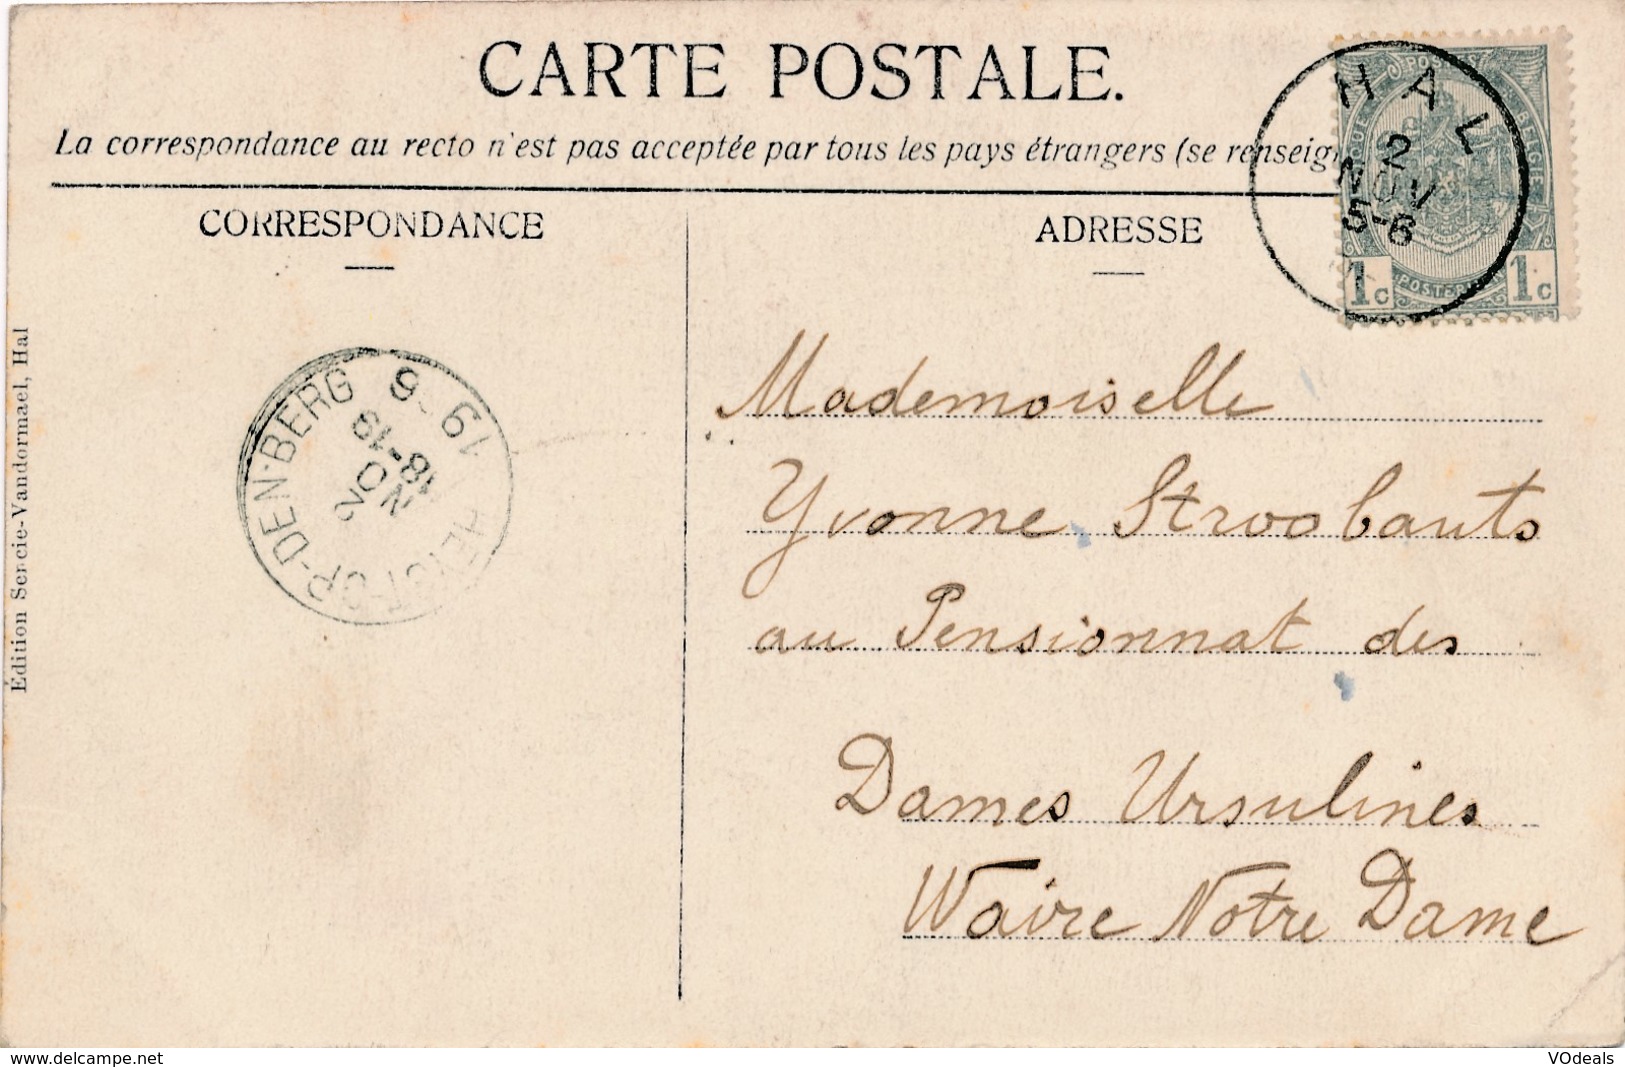 CARTE POSTALE.
La correspondance au recto n'est pas acceptée par tous les pays étrangers (se renseig
CORRESPONDANCE
ADRESSE
HAL
2
NOV
5-6
1c 1c
Édition Sencie-Vandormael, Hal
HEIST-OP-DEN-BERG
18-19
NOV
Mademoiselle
Yvonne Stroobants
au Pensionnat des
Dames Ursulines
Waire Notre Dame
www.delcampe.net
VOdeals